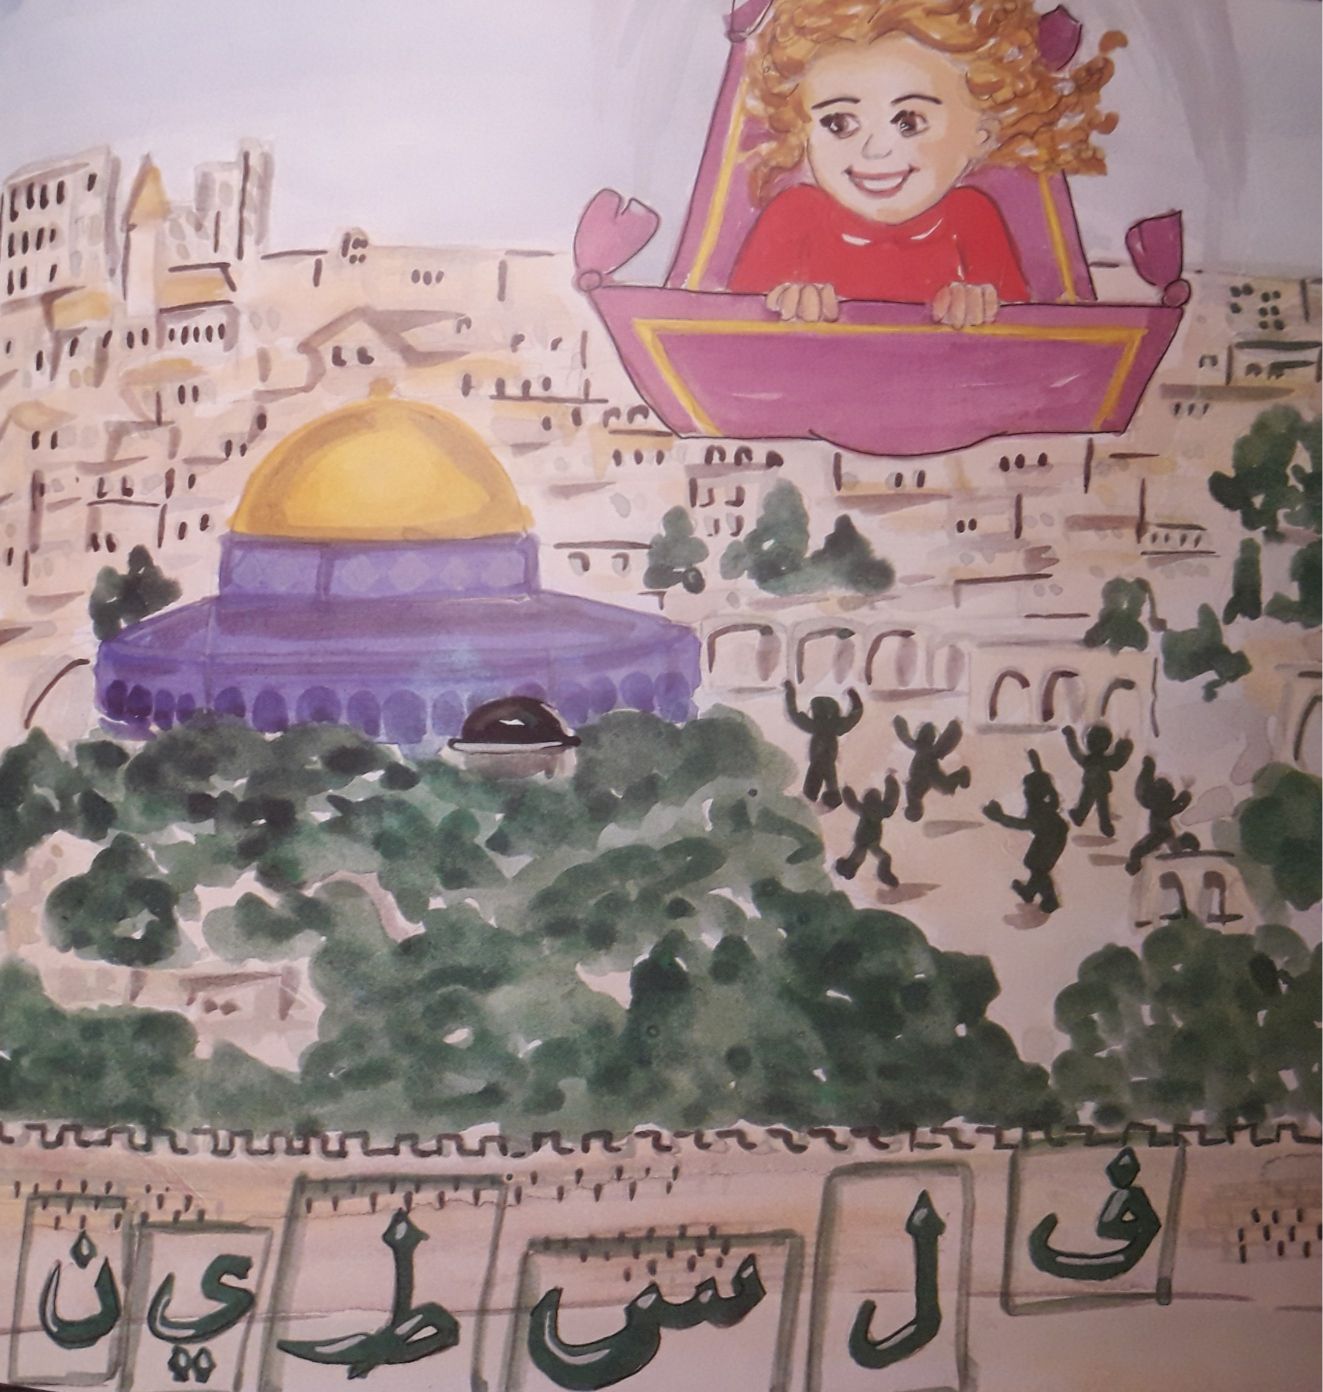 ف ل س ط ي ن